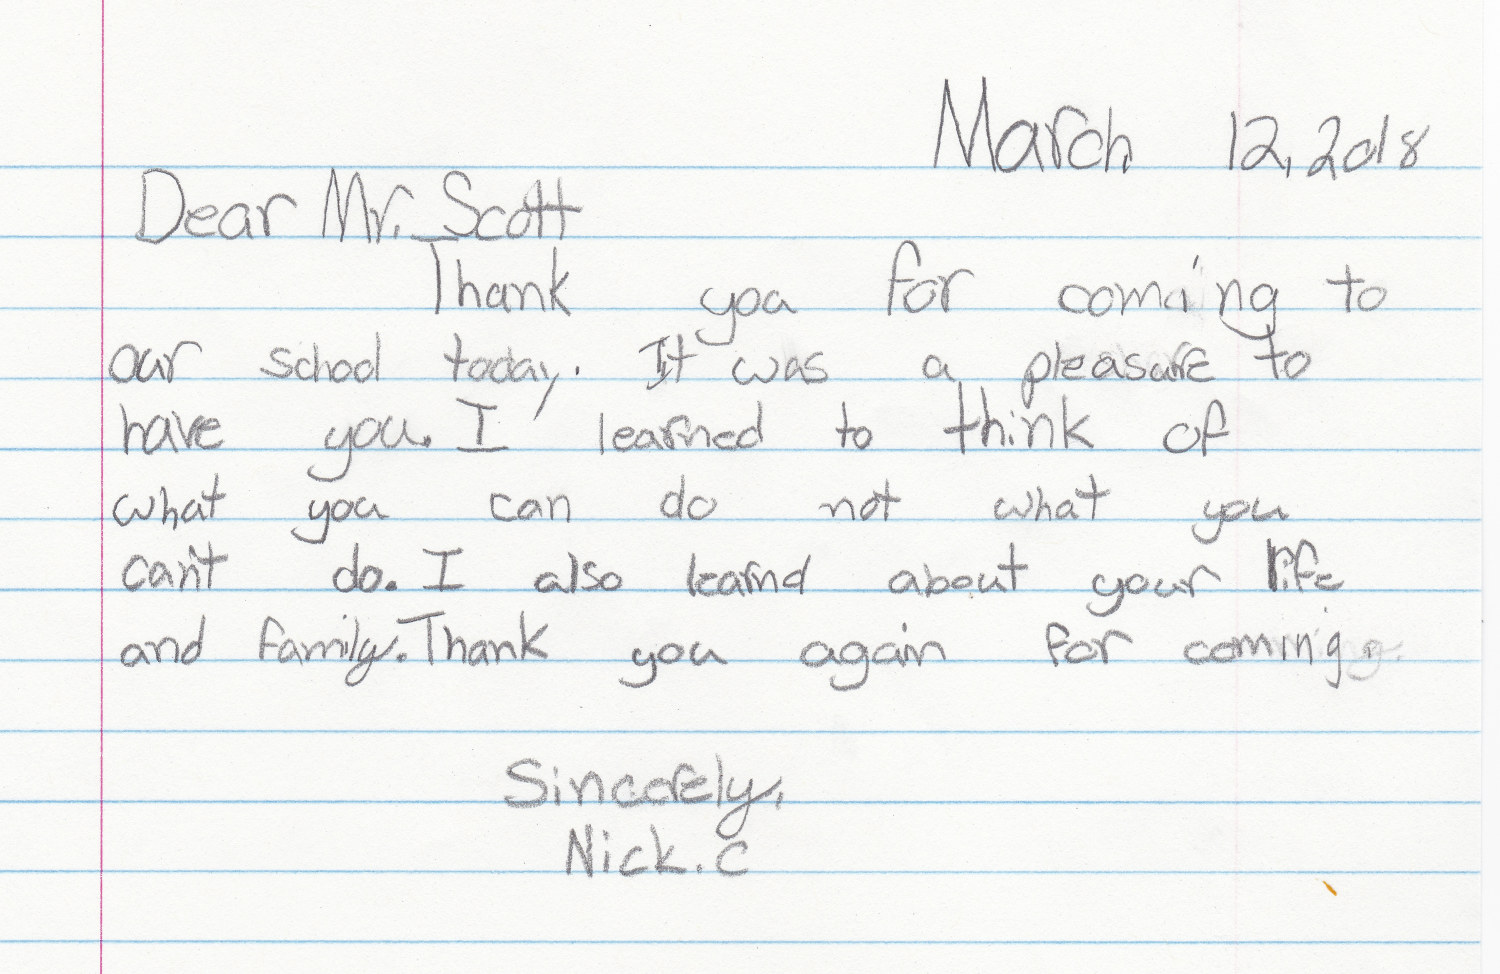 March 12, 2018
Dear Mr. Scott
Thank you for coming to
our school today. It was a pleasure to
have you. I learned to think of
what you can do not what you
can't do. I also learnd about your life
and family. Thank you again for coming.
Sincerely,
Nick. C